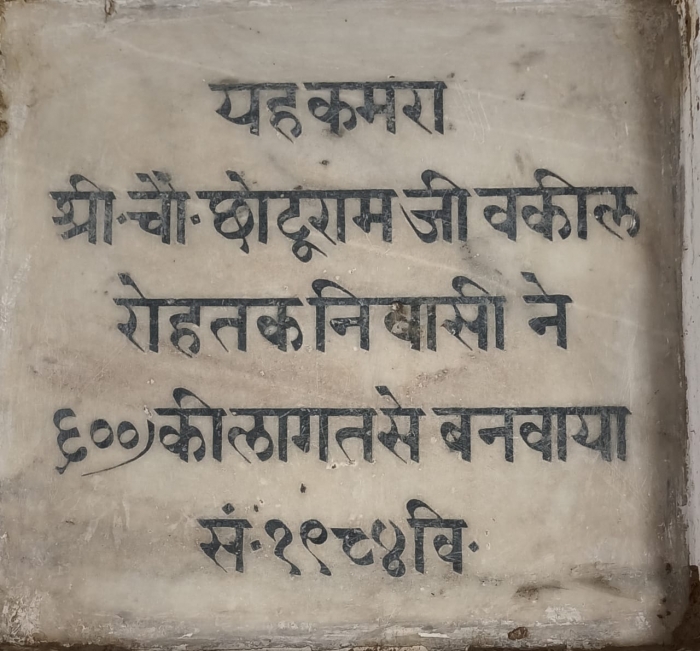 यह कमरा
श्री·चौ·छोटूराम जी वकील
रोहतक निवासी ने
६००) की लागत से बनवाया
सं·१९८४ वि·